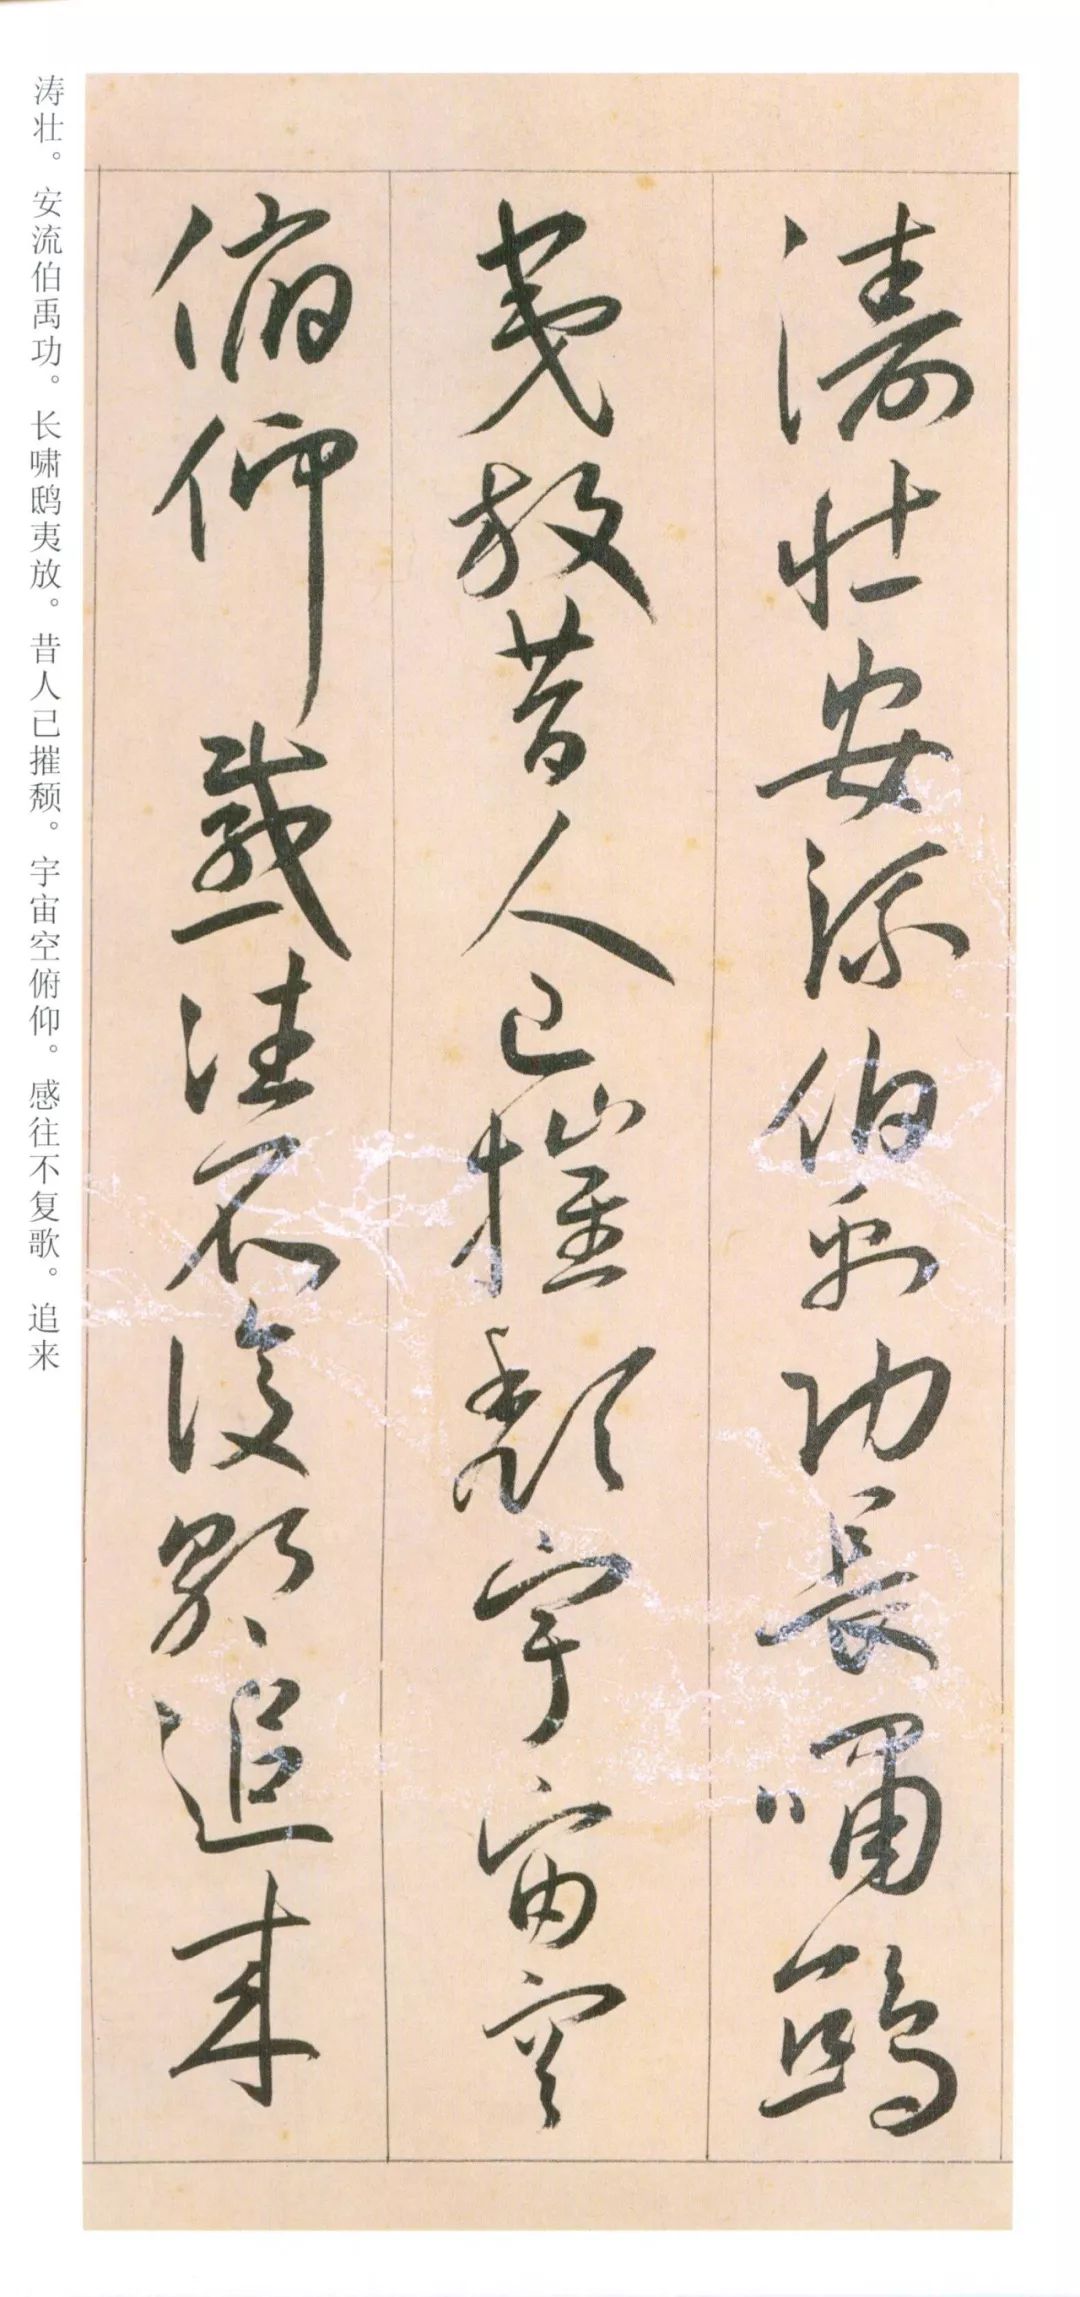 濤壮安流伯禹功長嘯鴟
夷放昔人已摧頽宇宙空
俯仰感往不復歌追来
涛壮。安流伯禹功。长啸鸱夷放。昔人已摧颓。宇宙空俯仰。感往不复歌。追来